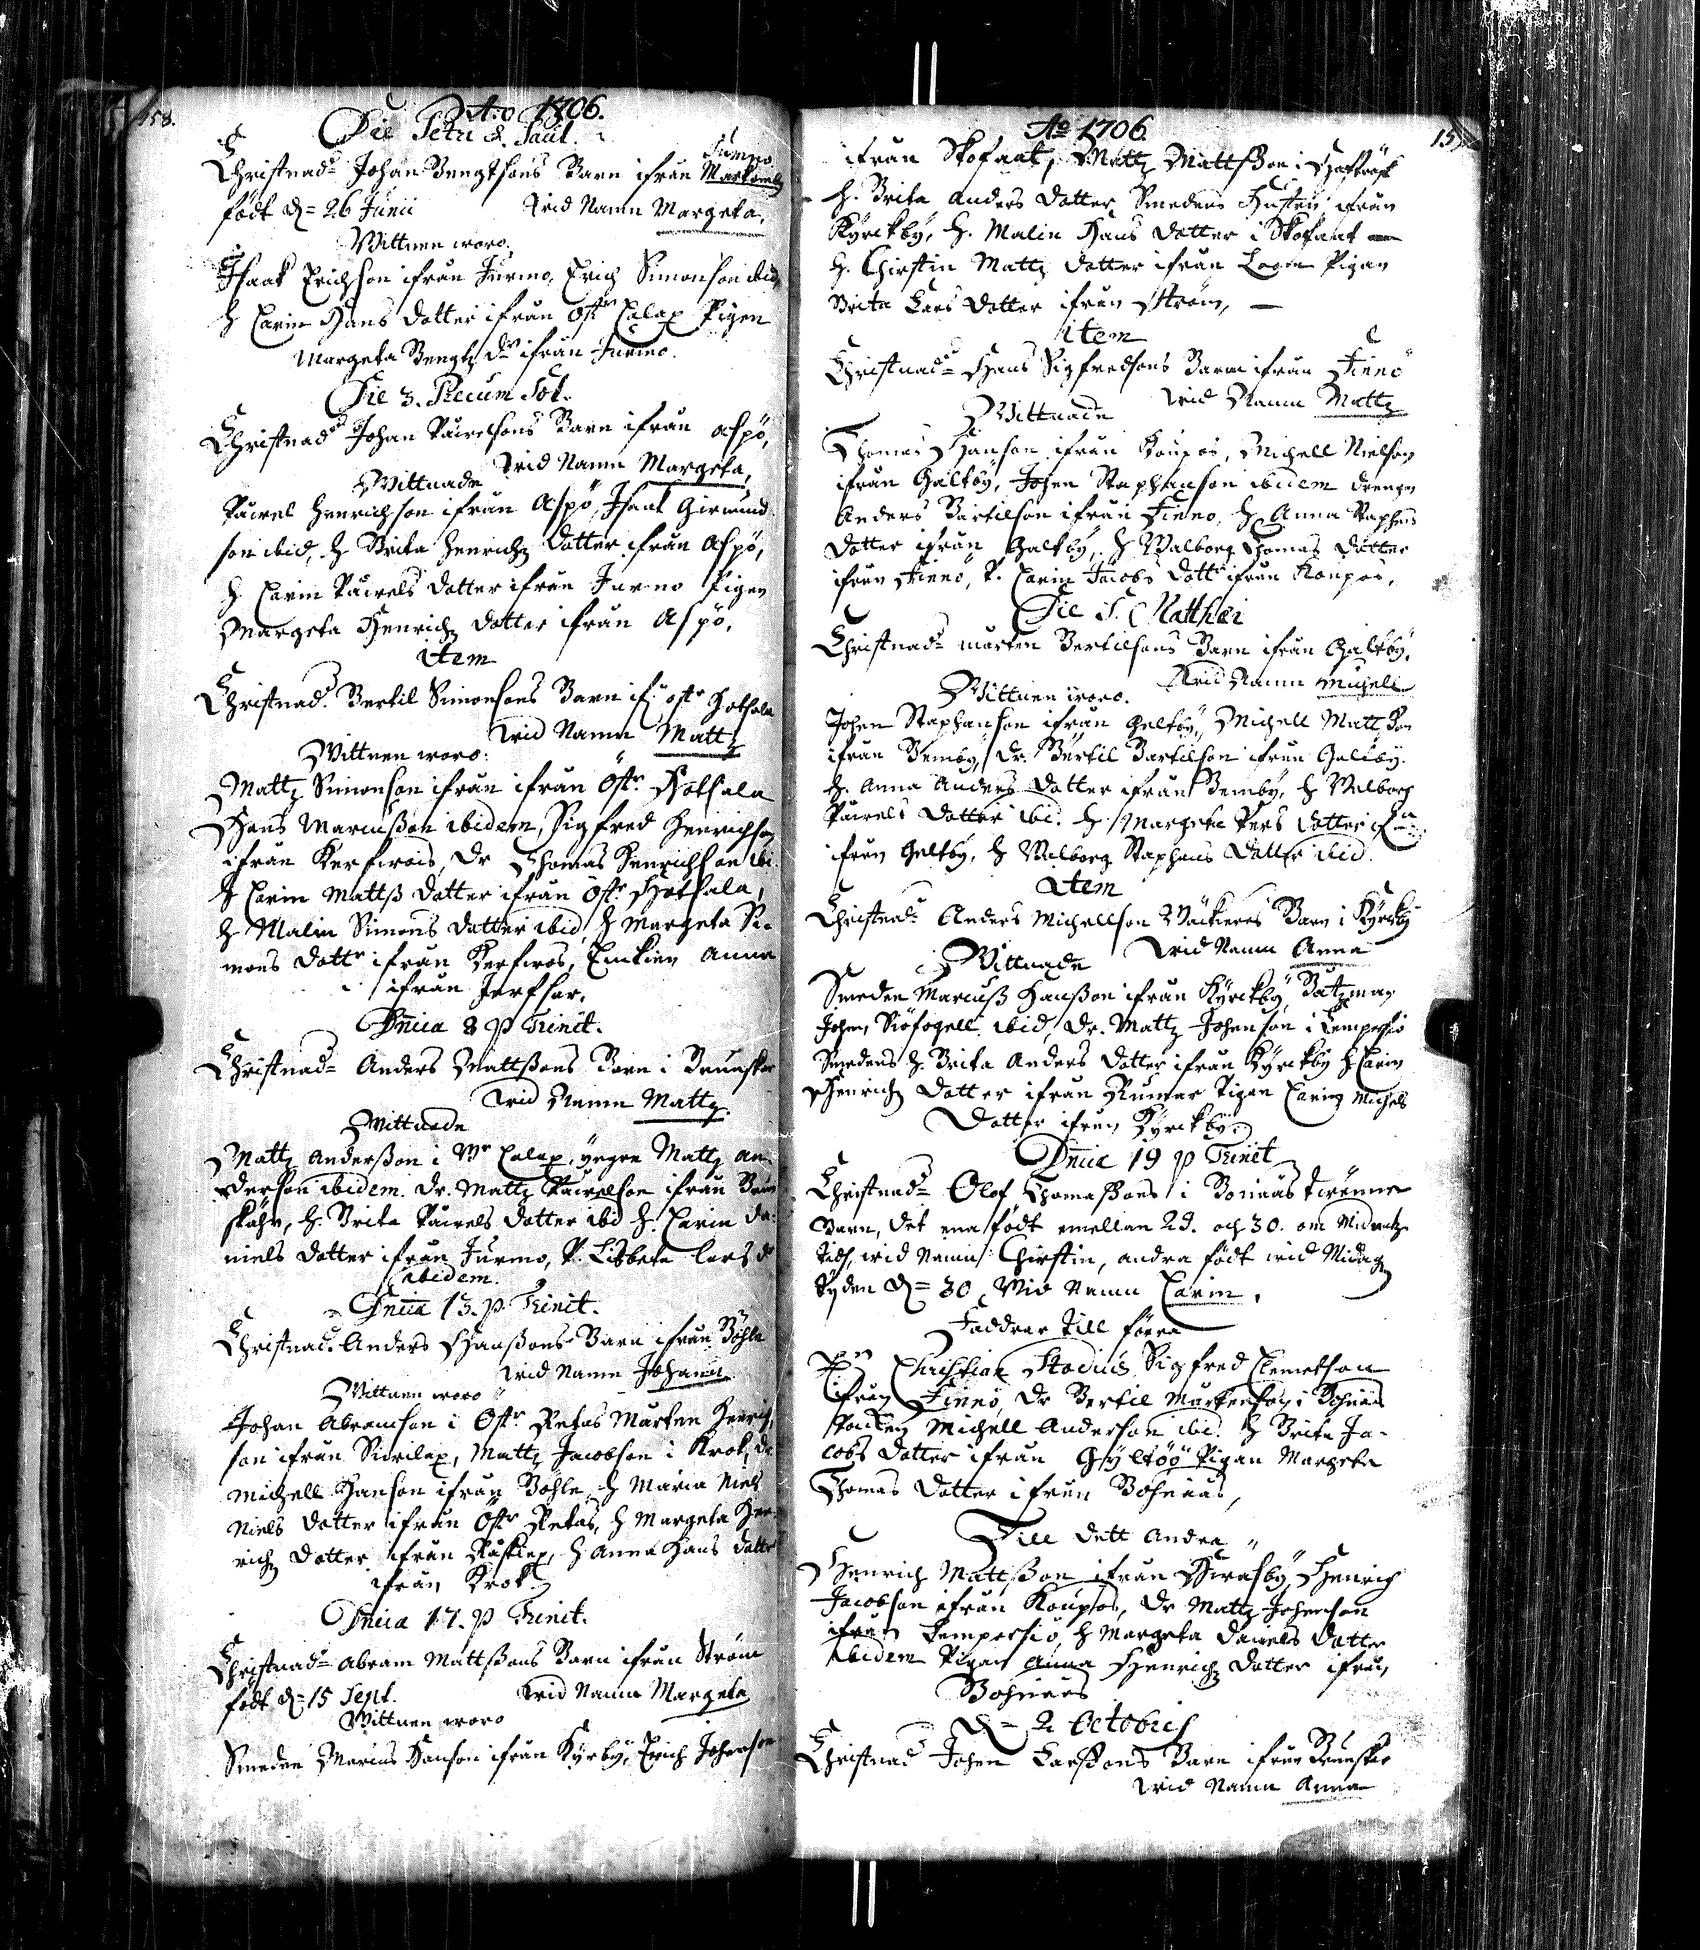 158.
A:o 1706.
Die Petri & Pauli.
Christnad= Johan Bengtsons Barn ifrån Jurmo
födt d= 26 Junii wid Namn Margeta.
Wittnen woro.
Isaak Erichson ifrån Jurmo, Erich Simonson ibid
H Carin Hans dotter ifrån Östr Calax Pigan
Margeta Bengtz dr ifrån Jurmo.
Die 3. Precum Sol.
Christnad Johan Påwelsons Barn ifrån Aspö,
wid Namn Margeta,
Wittnade
Påwel Henrichson ifrån Aspö, Isaak Girmund
son ibid, H Brita Henrichz dotter ifrån Aspö,
H Carin Påwels dotter ifrån Jurmo Pigan
Margeta Henrichz dotter ifrån Aspö.
Item
Christnad. Bertil Simonsons Barn ifr östr Hotsala
wid Namn Mattz
Wittnen woro:
Mattz Simonson ifrån ifrån Östr. Hotsala
Hans Marcußon ibidem, Sigfred Henrichson
ifrån Dr Thomas Henrichson ibi.
H Carin Mattß dotter ifrån östr Hotsala,
H Malin Simons dotter ibid H Margeta Si-
mons dottr ifrån Enkian Anna
ifrån
Dnica 8 p Trinit.
Christnad= Anders Mattßons Barn i Brunskär
wid Namn Mattz.
Wittnade
Mattz Anderßon i Wr Calax, yngre Mattz An-
derson ibidem. Dr. Mattz Påwelson ifrån Brun
skähr, H. Brita Påwels dotter ibid H. Carin Da-
niels dotter ifrån Jurmo, P. Lisbeta Lars dr
ibidem.
Dnica 13. p. Trinit.
Christnad. Anders Hanßons Barn ifrån Böhle
wid Namn Johann
Wittnen woro
Johan Abramson i Östr Retas Mårten Henrich
son ifrån Mattz Jacobson i Krok, dr
Michell Hanson ifrån Böhle, H Maria Niels
Niels dotter ifrån Östr Retas, H Margeta Hen-
richz dotter ifrån H Anna Hans dotter
ifrån Krok.
Dnica 17. p Trinit.
Christnad= Abram Mattßons Barn ifrån Ström
födt d= 15 Sept. wid Namn Margeta
Wittnen woro
Smeden Marcus Hanson ifrån Kyrby, Erich Johanson
Ao 1706
ifrån Mattz Mattßon i
H. Brita Anders dotter Smedens Hustru ifrån
Kyrckby, H. Malin Hans dotter i
H. Chirstin Mattz dotter ifrån Pigan
Brita Lars dotter ifrån Ström,
item
Christnad= Hans Sigfredsons Barn ifrån Finnö
wid Namn Mattz
Wittnade
Thomas Hanson ifrån Michell Nielson
ifrån Galtby, Johan Staphanson ibidem drengen
Anders Bertilson ifrån Finnö, H Anna Staphans
dotter ifrån Galtby, H Walborg Thomas dotter
ifrån Finnö, P. Carin Jacobs dottr ifrån
Die S. Matthæi
Christnad= Mårten Bertilsons Barn ifrån Galtby,
wid Namn Michell
Wittnen woro.
Johan Staphanson ifrån Galtby, Michell Mattßon
ifrån Dr. Bertil Bertilson ifrån Galtby.
H. Anna Anders dotter ifrån H Walborg
Påwels dotter ibi. H. Margeta Pers dotter
ifrån Galtby, H Walborg Staphans dotter ibid.
Item
Christnad= Anders Michellson Barn i Kyrckby
wid Namn Anna
Wittnade
Smeden Marcuß Hanßon ifrån Kyrckby, Båtzman
Johan ibid, Dr. Mattz Johanson i
Smedens H. Brita Anders dotter ifrån Kyrckby H Carin
Henrichz dotter ifrån Pigan Carin Michels
dotter ifrån Kyrckby.
Dnica 19 p Trinit
Christnad= Olof Thomaßons i
Barn, det ena födt emellan 29. och 30. om Midnatz
tidh, wid Namn Chirstin, andra födt wid Midags
tyden d= 30 wid Namn Carin,
Faddrar till förra
Christian Stodius Sigfred Clemetson
ifrån Finnö, Dr Bertil Mårtenson i
Michell Anderson ibi. H Brita Ja-
cobs dotter ifrån Gyltöö Pigan Margeta
Thomas dotter ifrån
Till dett Andra
Henrich Mattßon ifrån Henrich
Jacobson ifrån Dr Mattz Johanson
ifrån H Margeta Daniels dotter
ibidem Pigan Anna Henrichz dotter ifrån
d= 2 Octobris
Christnad Johan Larßons Barn ifrån Brunskär
wid Namn Anna